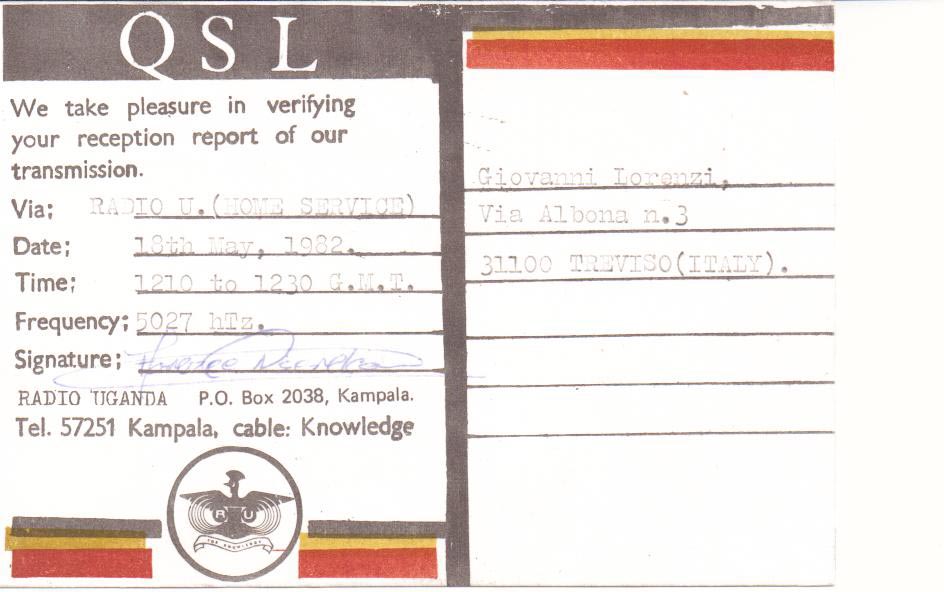 QSL
We take pleasure in verifying
your reception report of our
transmission.
Via; RADIO U.(HOME SERVICE)
Date; 18th May, 1982.
Time; 1210 to 1230 G.M.T.
Frequency; 5027 hTz.
Signature;
RADIO UGANDA P.O. Box 2038, Kampala.
Tel. 57251 Kampala, cable: Knowledge
R U
FOR KNOWLEDGE
Giovanni Lorenzi,
Via Albona n.3
31100 TREVISO(ITALY).